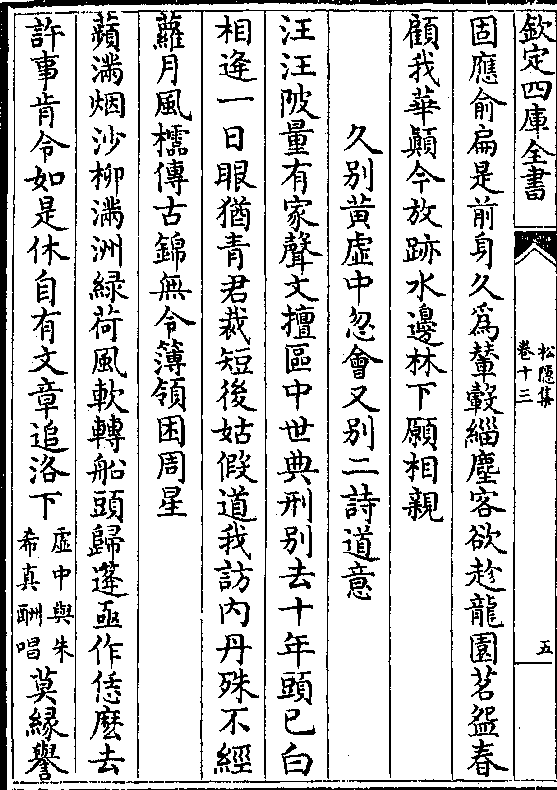 欽定四庫全書
松隱集
卷十三
五
固應俞扁是前身久爲輦轂緇塵客欲趁龍園茗盌春
顧我華顛今放跡水邊林下願相親
久别黄虛中忽會又别二詩道意
汪汪陂量有家聲文擅區中世典刑别去十年頭已白
相逢一日眼猶青君裁短後姑假道我訪内丹殊不經
蘿月風櫺傳古錦無令簿領困周星
蘋滿烟沙柳滿洲緑荷風軟轉船頭歸蓬亟作恁麽去
許事肯令如是休自有文章追洛下虛中與朱希真酬唱莫縁譽